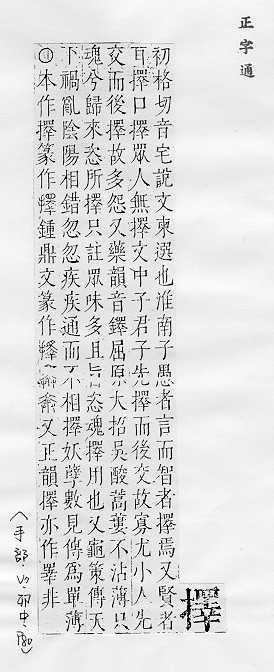 正字通
擇
初格切音宅說文柬選也淮南子愚者言而智者擇焉又賢者
耳擇口擇眾人無擇文中子君子先擇而後交故寡尤小人先
交而後擇故多怨又藥韻音鐸屈原大招吳酸蒿蔞不沾薄只
魂兮歸來恣所擇只註眾味多且旨恣魂擇用也又龜策傳天
下禍亂陰陽相錯忽忽疾疾通而不相擇妖孽數見傳為單薄
○本作擇篆作擇鍾鼎文篆作 又正韻擇亦作睪非
(手部 卯中